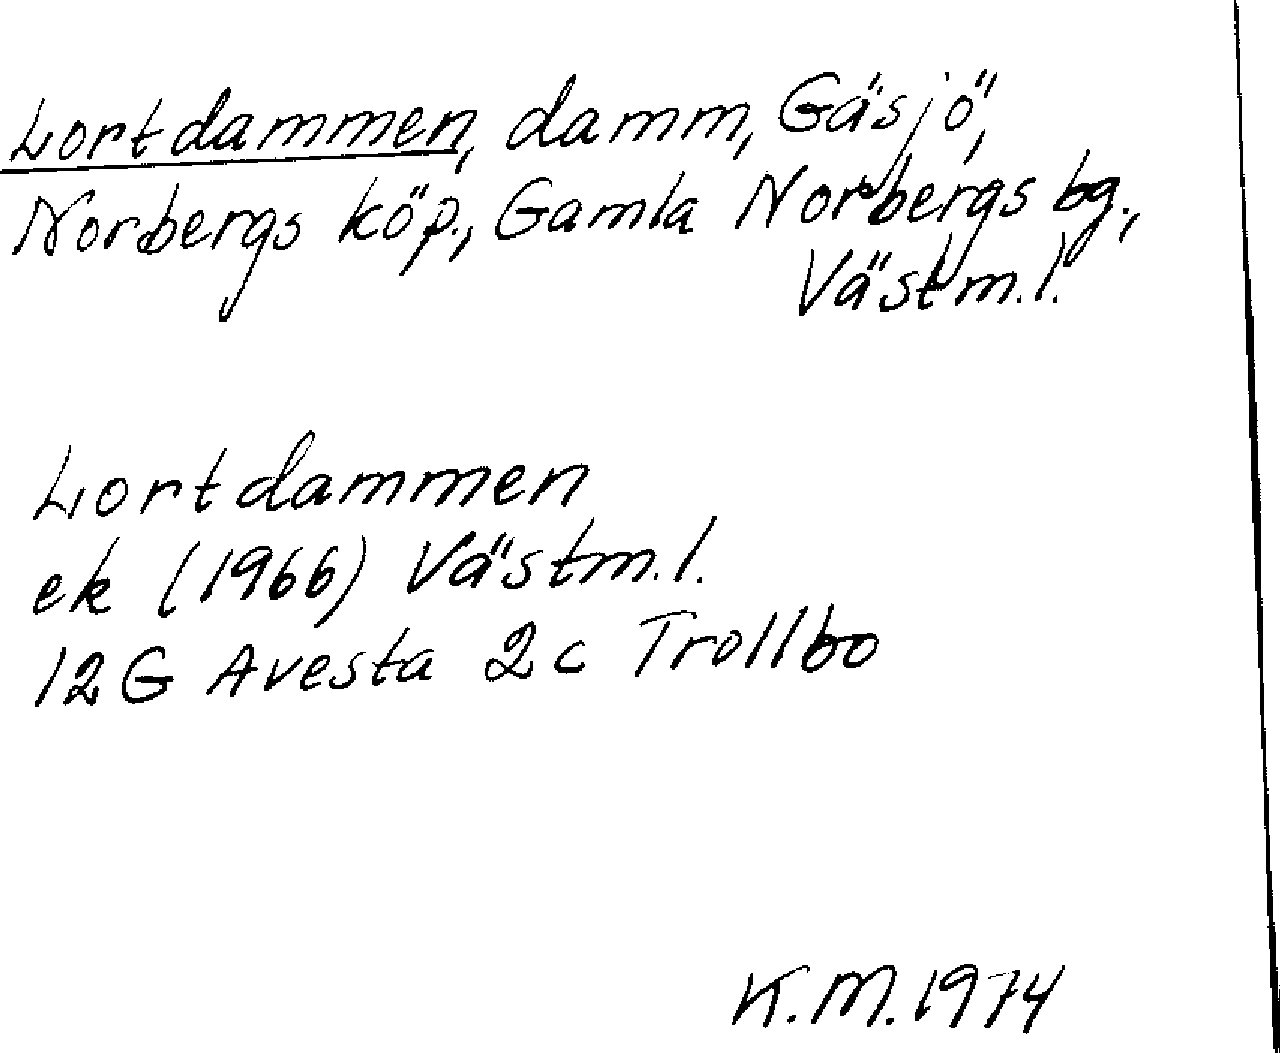 Lortdammen, damm, Gäsjö,
Norbergs köp., Gamla Norbergs bg.,
Västm.l.
Lortdammen
ek (1966) Västm.l.
12G Avesta 2c Trollbo
K.M. 1974